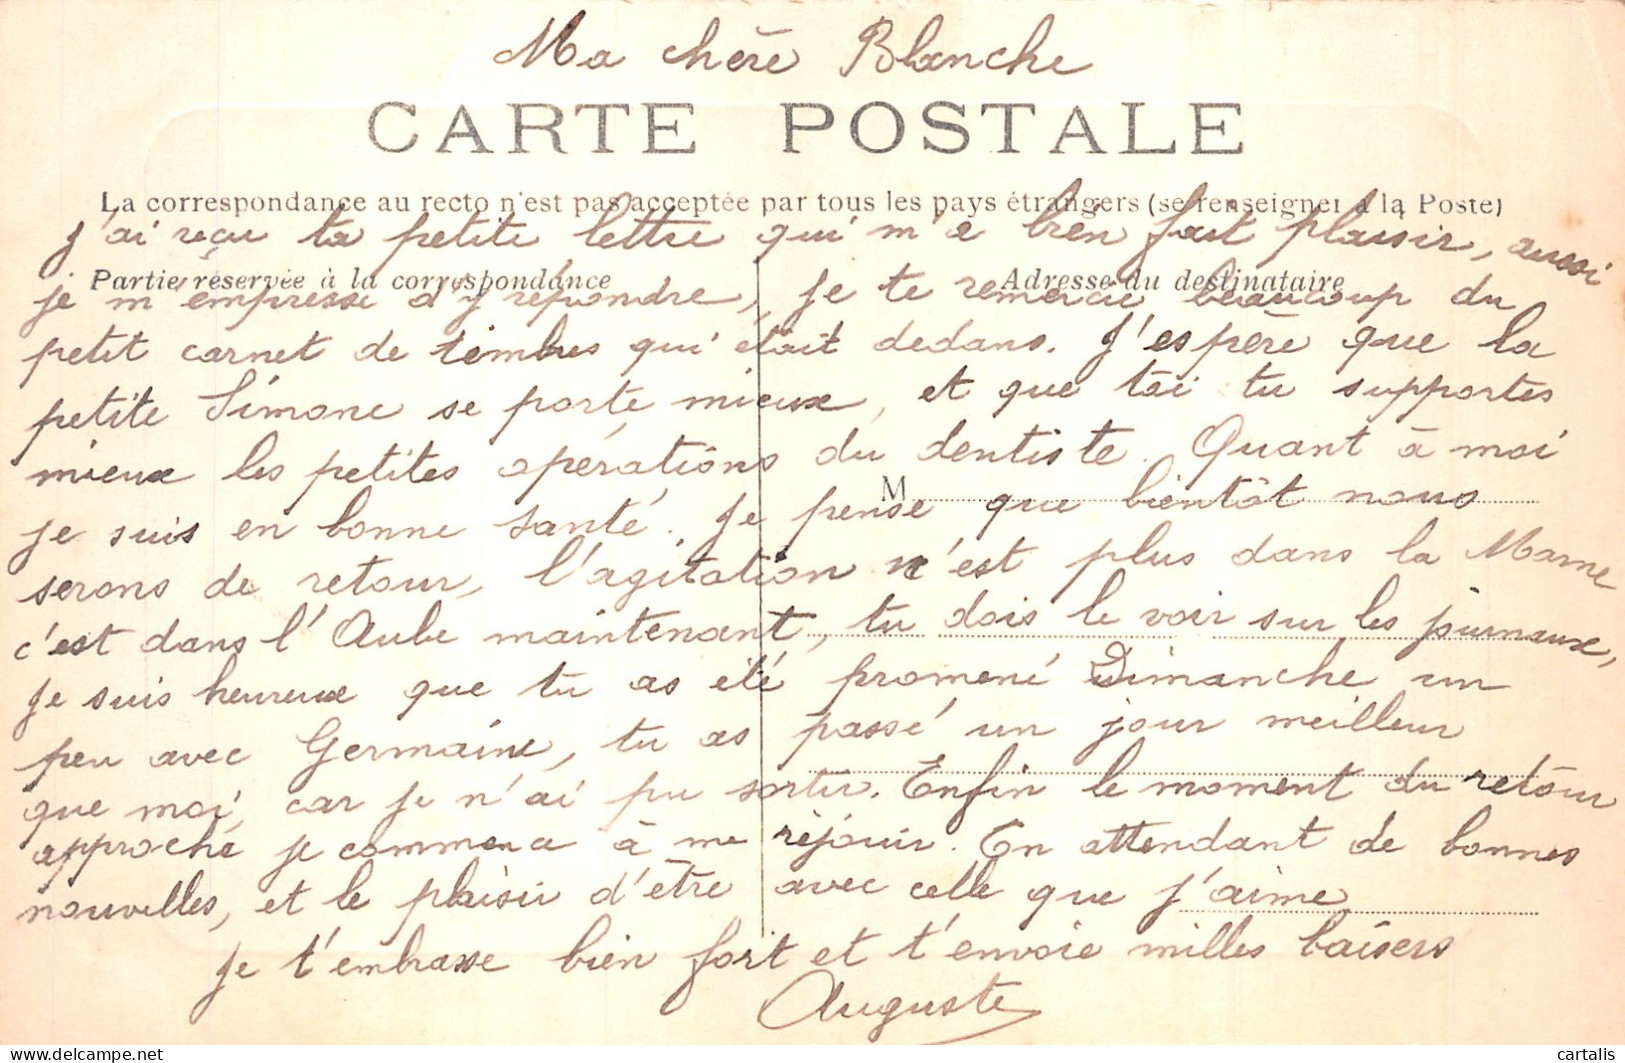 Ma chère Blanche
CARTE POSTALE
La correspondance au recto n'est pas acceptée par tous les pays étrangers (se renseigner à la Poste)
j'ai reçu ta petite lettre qui m'a bien fait plaisir, aussi
Partie réservée à la correspondance
Adresse du destinataire
je m'empresse d'y répondre, je te remercie beaucoup du
petit carnet de timbres qui était dedans. J'espère que la
petite Simone se porte mieux, et que toi tu supportes
mieux les petites opérations du dentiste. Quant à moi
M
je suis en bonne santé. Je pense que bientôt nous
serons de retour, l'agitation n'est plus dans la Marne
c'est dans l'Aube maintenant, tu dois le voir sur les journaux,
je suis heureux que tu as été promené Dimanche un
peu avec Germaine, tu as passé un jour meilleur
que moi, car je n'ai pu sortir. Enfin le moment du retour
approche je commence à me réjouir. En attendant de bonnes
nouvelles, et le plaisir d'être avec celle que j'aime
je t'embrasse bien fort et t'envoie milles baisers
Auguste
cartalis
© cartalis.com